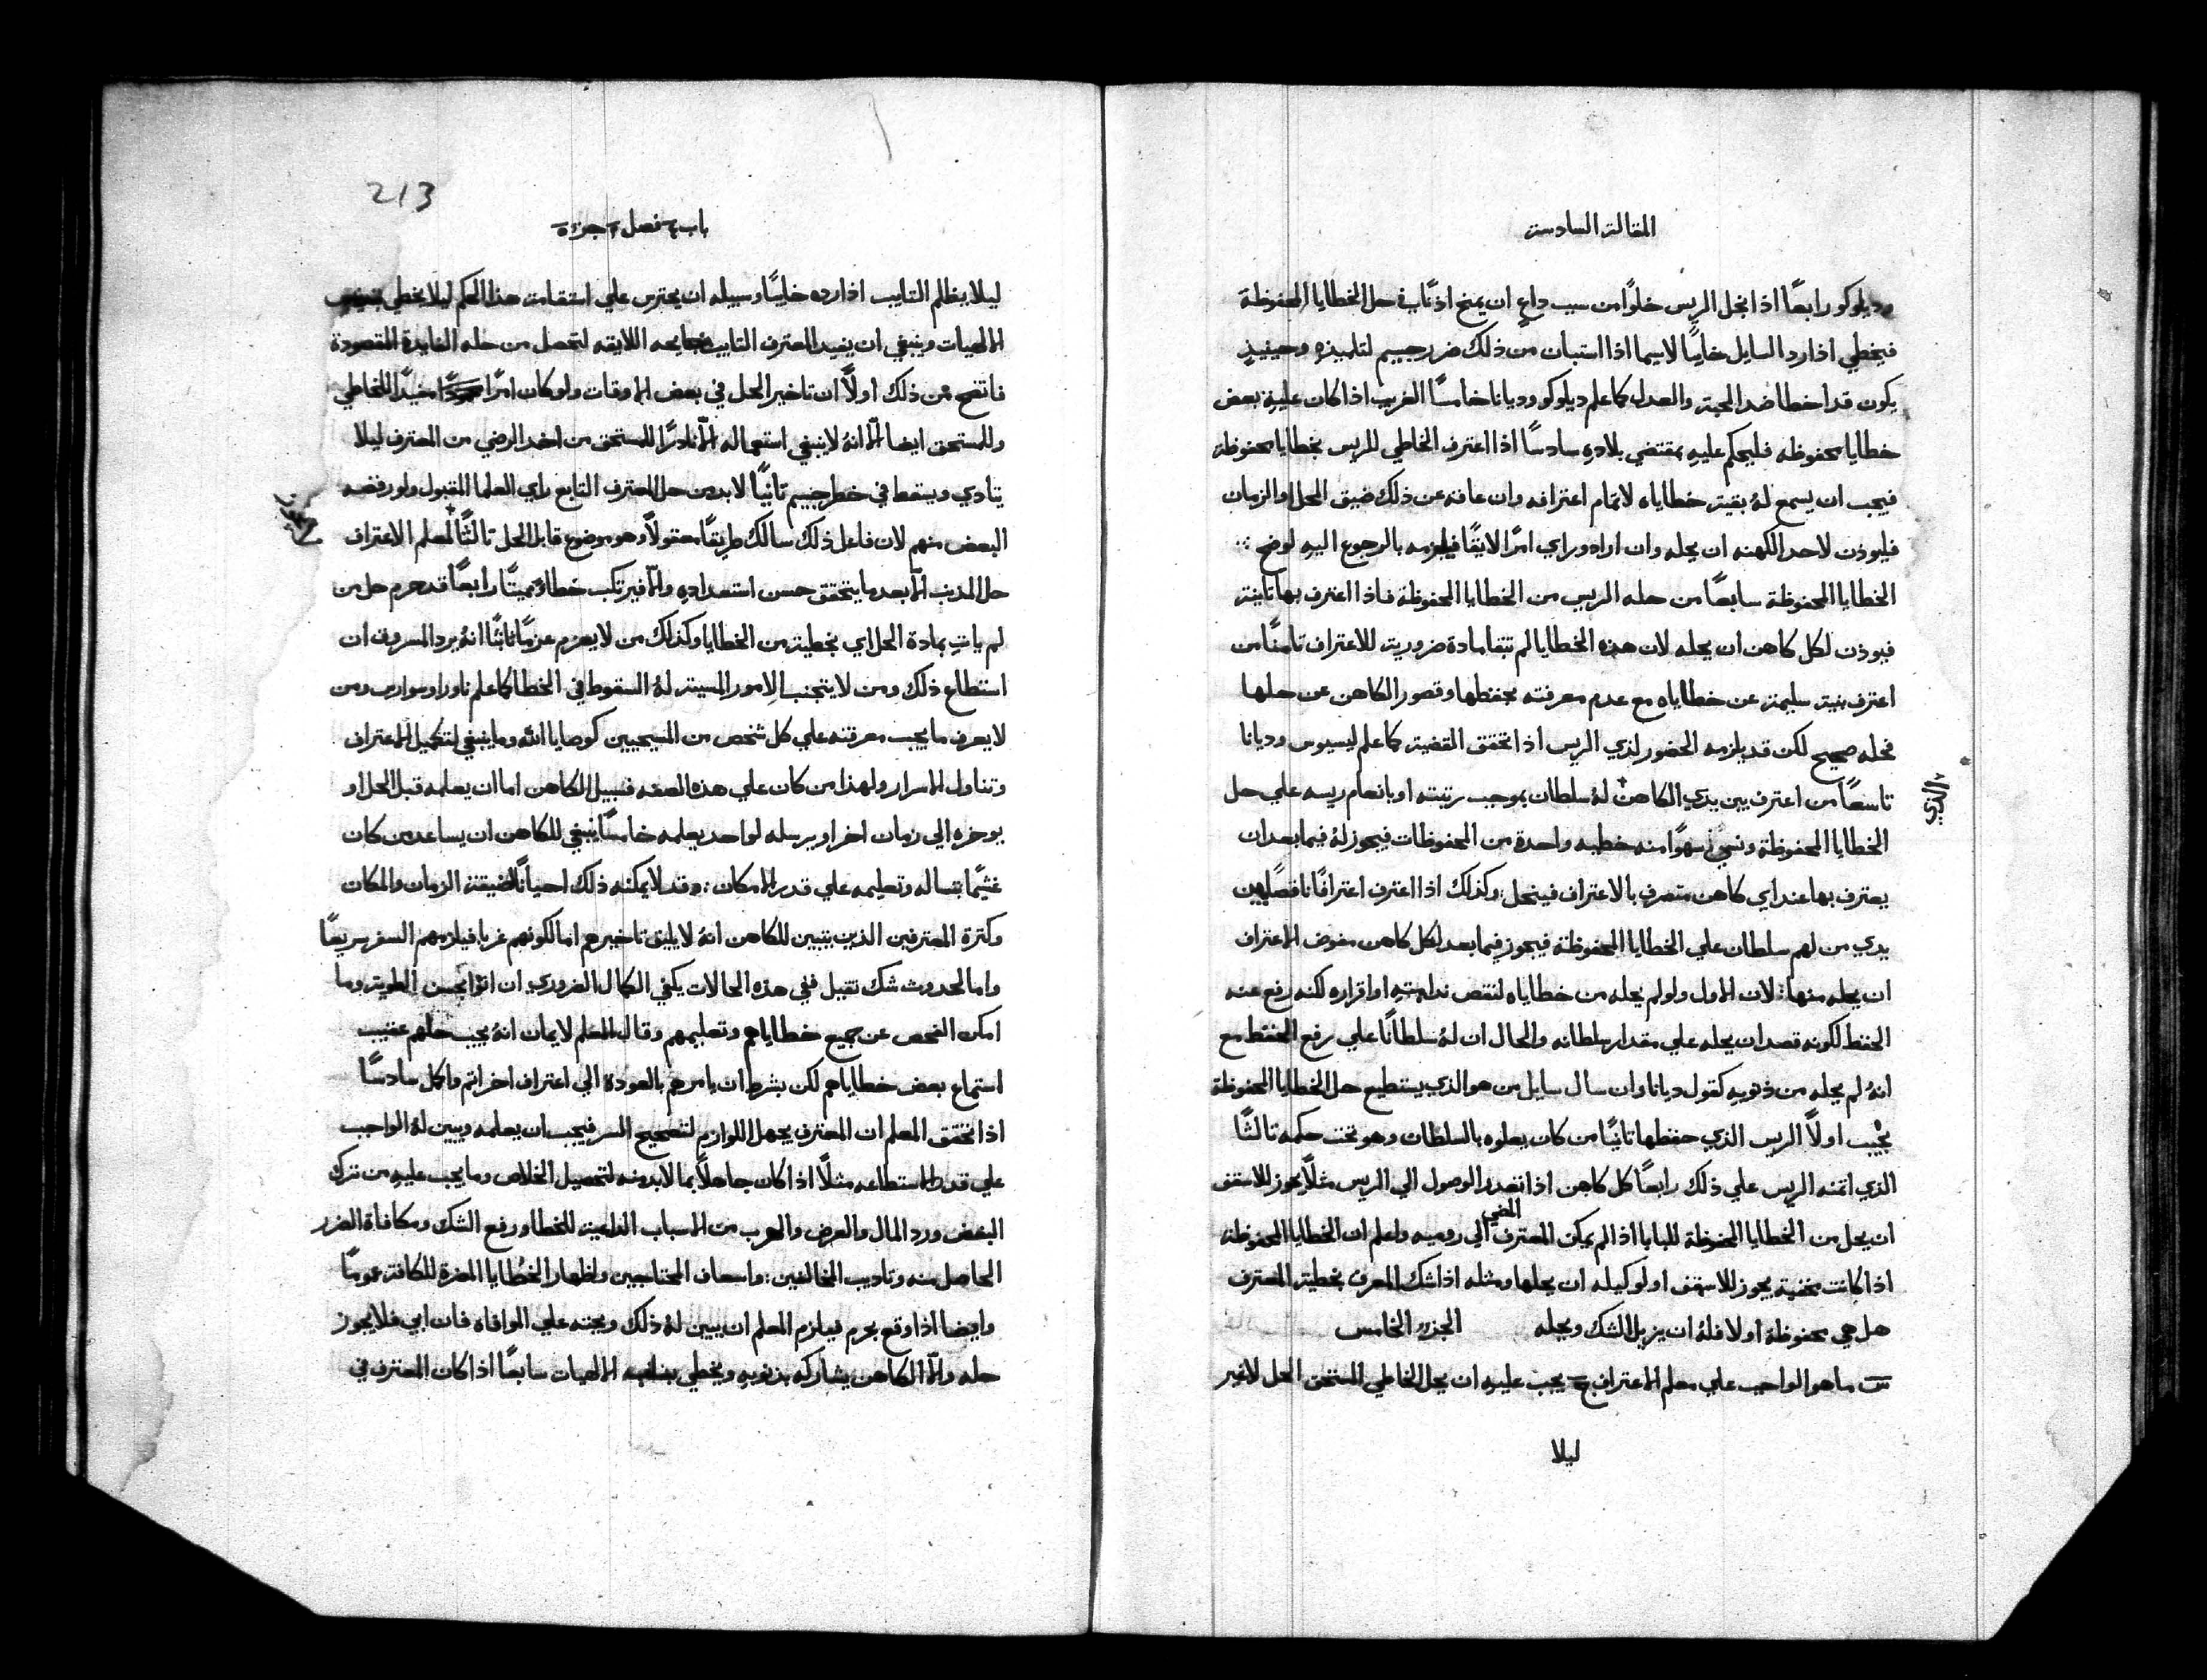 المقالة السادسة
وديلوكو رابعًا اذا بخل الريس خلوًا من سبب داعٍ ان يمنح اذنًا في حل الخطايا المحفوظة
فيخطي اذا رد السايل خايبًا لاسيما اذا استبان من ذلك ضرر جسيم لتلميذهِ وحينيذٍ
يكون قد اخطا ضد المحبة والعدل كما علم ديلوكو وديانا خامسًا الغريب اذا كان عليهِ بعض
خطايا محفوظه فليحكم عليهِ بمقتضي بلادهِ سادسًا اذا اعترف الخاطي للريس بخطايا محفوظة
فيجب ان يسمع لهُ بقية خطاياه لاتمام اعترافه وان عاقه عن ذلك ضيق المحل او الزمان
فليوذن لاحد الكهنه ان يحله وان اراد وراي امرًا لايقًا فيلزمه بالرجوع اليهِ لوضح
الخطايا المحفوظة سابعًا من حله الريس من الخطايا المحفوظة فاذا اعترف بها ثانيةً
فيوذن لكل كاهن ان يحله لان هذه الخطايا لم تبقا مادة ضرورية للاعتراف ثامنًا من
اعترف بنية سليمة عن خطاياه مع عدم معرفته بحفظها وقصور الكاهن عن حلها
فحله صحيح لكن قد يلزمه الحضور لذي الريس اذا تحقق القضية كما علم ليسيوس وديانا
تاسعًا من اعترف بين يدي الكاهن لهُ سلطان بموجب رتبته او بانعام ريسه علي حل
الذي
الخطايا المحفوظة ونسي سهوًا منه خطيه واحدة من المحفوظات فيجوز لهُ فيما بعد ان
يعترف بها عند اي كاهن متصرف بالاعتراف فينحل وكذلك اذا اعترف اعترافًا ناقصًا بين
يدي من لهم سلطان علي الخطايا المحفوظة فيجوز فيما بعد لكل كاهن مفوض الاعتراف
ان يحله منها لان الاول ولو لم يحله من خطاياه لنقص ندامتهِ او اقراره لكنه رفع عنه
الحفظ لكونه قصد ان يحله علي مقدار سلطانه والحال ان لهُ سلطانًا علي رفع الحفظ مع
انهُ لم يحله من ذنوبهِ كقول ديانا وان سال سايل من هو الذي يستطيع حل الخطايا المحفوظة
نجيب اولاً الريس الذي حفظها ثانيًا من كان يعلوه بالسلطان وهو تحت حكمه ثالثًا
الذي اتمنه الريس علي ذلك رابعًا كل كاهن اذا تعذر الوصول الي الريس مثلاً يجوز للاسقف
ان يحل من الخطايا المحفوظة للبابا اذا لم يمكن المعترف المضي الي روميه واعلم ان الخطايا المحفوظة
اذا كانت مخفية يجوز للاسقف او لوكيله ان يحلها ومثله اذا شك المعرف بخطية المعترف
هل هي محفوظة او لا فلهُ ان يزيل الشك ويحله الجزء الخامس
س ما هو الواجب علي معلم الاعتراف ج يجب عليهِ ان يحل الخاطي المستحق الحل لاغير
ليلا
213
باب فصل جزء
ليلا يظلم التايب اذا رده خايبًا وسبيله ان يحترس علي استقامة هذا الحكم ليلا يخطي
الالهيات وينبغي ان يفيد المعترف التايب اللايقه لتحصل من حله الفايدة المقصودة
فاتضح من ذلك اولاً ان تاخير الحل في بعض الاوقات ولو كان امرًا مفيدًا للخاطي
وللمستحق ايضا الا انهُ لاينبغي استعماله الا نادرًا للمستحق من اخد الرضي من المعترف ليلا
يتاذي ويسقط في خطر جسيم ثانيًا لابد من حل المعترف التابع راي العلما المقبول ولو رفضه
البعض منهم لان فاعل ذلك سالك طريقًا معقولاً وهو موضوع قابل الحل ثالثًا لمعلم الاعتراف
حل المذنب الا بعد ما يتحقق حسن استعدادهِ والا فيرتكب خطاءً مميتًا رابعًا قد حرم حل من
لم ياتِ بمادة الحل اي بخطية من الخطايا وكذلك من لايعزم عزمًا ثابتًا انهُ يرد المسروق ان
استطاع ذلك ومن لا يتجنب الامور المسببة لهُ السقوط في الخطا كما علم ناورا وسوارس ومن
لا يعرف ما يجب معرفته علي كل شخص من المسيحيين كوصايا الله وما ينبغي لتكميل الاعتراف
وتناول الاسرار ولهذا من كان علي هذه الصفه فسبيل الكاهن اما ان يعلمه قبل الحل او
يوخره الي زمان اخر او يرسله لواحد يعلمه خامسًا ينبغي للكاهن ان يساعد من كان
غشيمًا بتساله وتعليمه علي قدر الامكان وقد لا يمكنه ذلك احيانًا لضيقة الزمان والمكان
وكثرة المعترفين الذين يتبين للكاهن انهُ لا يليق تاخيرهم اما لكونهم غربا فيلزمهم السفر سريعًا
واما لحدوث شك ثقيل ففي هذه الحالات يكفي الكمال الضروري ان اتوا بحسن الطوية وما
امكن الفحص عن جميع خطاياهم وتعليمهم وقال المعلم لايمان انهُ يجب حلهم عقيب
استماع بعض خطاياهم لكن بشرط ان يامرهم بالعودة الي اعتراف اخر اتم واكمل سادسًا
اذا تحقق المعلم ان المعترف يجهل اللوازم لتصحيح السر فيجب ان يعلمه ويبين لهُ الواجب
علي قدر الاستطاعه مثلاً اذا كان جاهلاً بما لابد منه لتحصيل الخلاص وما يجب عليهِ من ترك
البغض ورد المال والعرض والهرب من الاسباب الداعية للخطا ورفع الشك ومكافاة الضرر
الحاصل منه وتاديب المخالفين واسعاف المحتاجين واظهار الخطايا المضرة للكافة عمومًا
وايضا اذا وقع بحرم فيلزم المعلم ان يبين لهُ ذلك ويحثه علي الوافاه فان ابي فلا يجوز
حله والا الكاهن يشاركه بذنوبهِ ويخطي الالهيات سابعًا اذا كان المعترف في